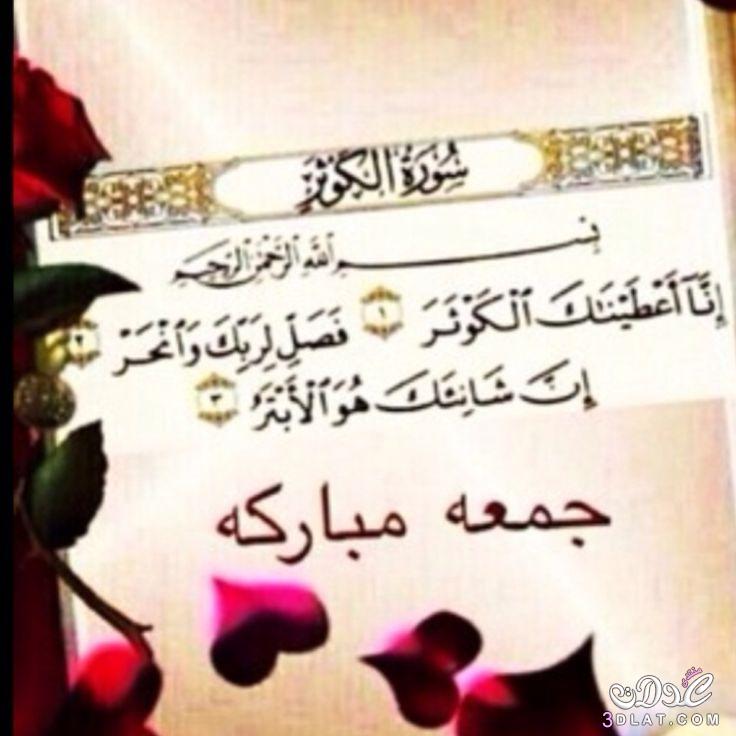 سُورَةُ الكَوْثَرِ
بِسْمِ اللَّهِ الرَّحْمَٰنِ الرَّحِيمِ
إِنَّآ أَعْطَيْنَٰكَ ٱلْكَوْثَرَ ١ فَصَلِّ لِرَبِّكَ وَٱنْحَرْ ٢
إِنَّ شَانِئَكَ هُوَ ٱلْأَبْتَرُ ٣
جمعه مباركه
منتدى عدلات
3DLAT.COM